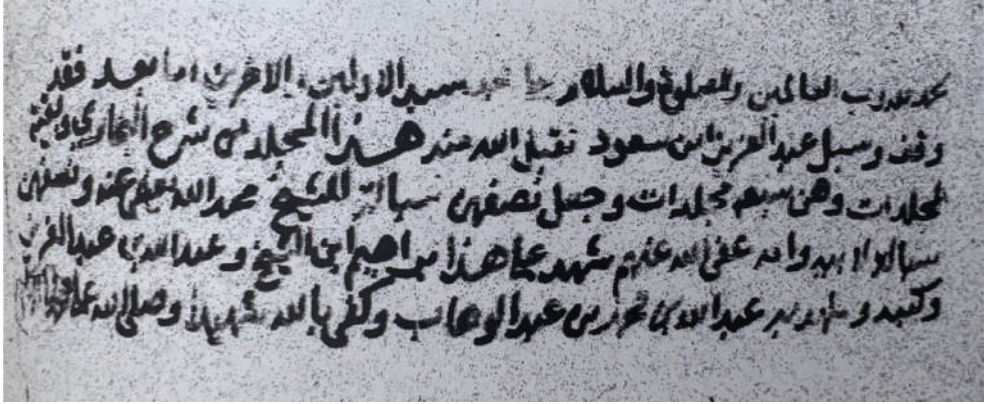 الحمد لله رب العالمين والصلوة والسلام على محمد سيد الاولين والاخرين اما بعد فقد
وقف وسبل عبد العزيز ابن سعود تقبل الله منه هذا المجلد من شرح البخاري وبقية
المجلدات وهن سبعه مجلدات وجعل نصفهن سبالة للشيخ محمد الله يعفي عنه ونصفهن
سباله لابيه وامه عفى الله عنهم شهد على هذا ابراهيم ابن الشيخ وعبد الله بن عبد العزيز
وكتبه وشهد به عبد الله بن محمد بن عبد الوهاب وكفى بالله شهيدا وصلى الله على